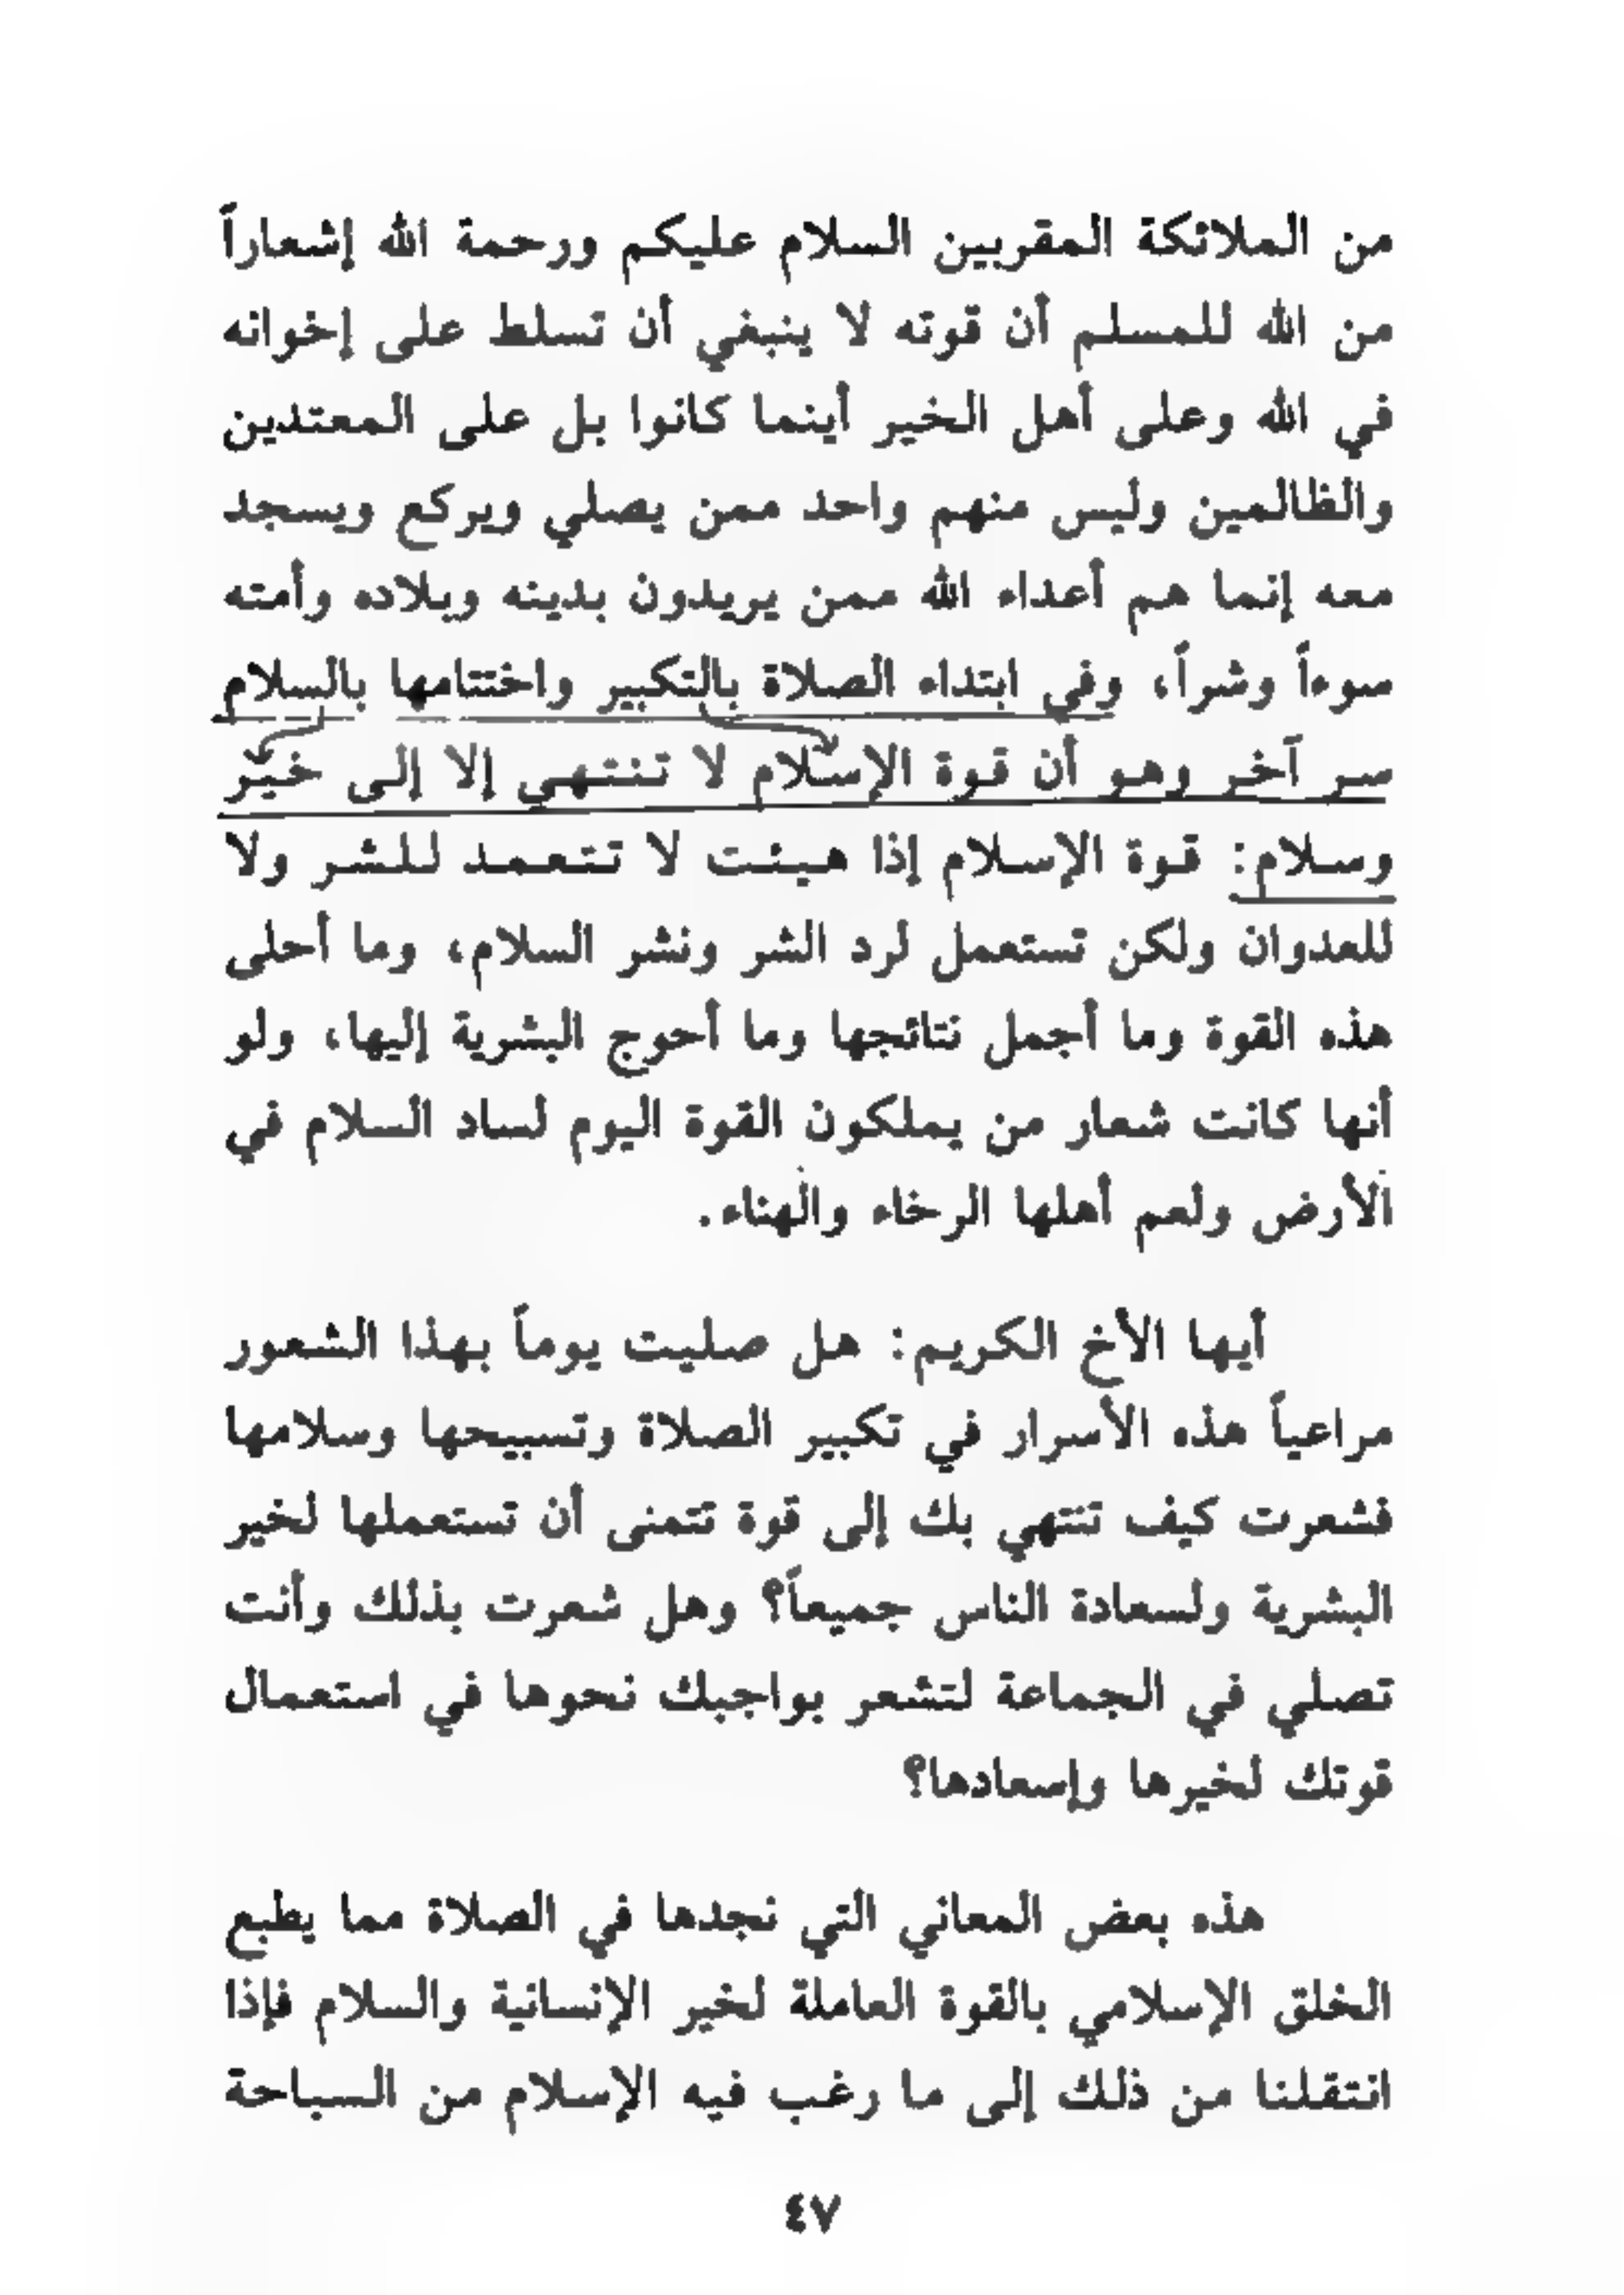 من الملائكة المقربين السلام عليكم ورحمة الله إشعاراً
من الله للمسلم أن قوته لا ينبغي أن تسلط على إخوانه
في الله وعلى أهل الخير أينما كانوا بل على المعتدين
والظالمين وليس منهم واحد ممن يصلي ويركع ويسجد
معه إنما هم أعداء الله ممن يريدون بدينه وبلاده وأمته
سوءاً وشراً، وفي ابتداء الصلاة بالتكبير واختتامها بالسلام
سر آخر وهو أن قوة الإسلام لا تنتهي إلا إلى خير
وسلام: قوة الإسلام إذا هيئت لا تتعمد للشر ولا
للعدوان ولكن تستعمل لرد الشر ونشر السلام، وما أحلى
هذه القوة وما أجمل نتائجها وما أحوج البشرية إليها، ولو
أنها كانت شعار من يملكون القوة اليوم لساد السلام في
الأرض ولعم أهلها الرخاء والهناء.
أيها الأخ الكريم: هل صليت يوماً بهذا الشعور
مراعياً هذه الأسرار في تكبير الصلاة وتسبيحها وسلامها
فشعرت كيف تنتهي بك إلى قوة تتمنى أن تستعملها لخير
البشرية ولسعادة الناس جميعاً؟ وهل شعرت بذلك وأنت
تصلي في الجماعة لتشعر بواجبك نحوها في استعمال
قوتك لخيرها وإسعادها؟
هذه بعض المعاني التي نجدها في الصلاة مما يطبع
الخلق الإسلامي بالقوة العاملة لخير الإنسانية والسلام فإذا
انتقلنا من ذلك إلى ما رغب فيه الإسلام من السباحة
٤٧